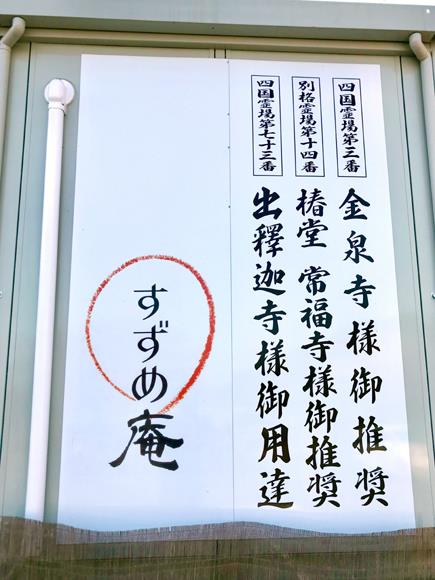 四国霊場第三番
金泉寺様御推奨
別格霊場第十四番
椿堂 常福寺様御推奨
四国霊場第七十三番
出釋迦寺様御用達
すずめ庵